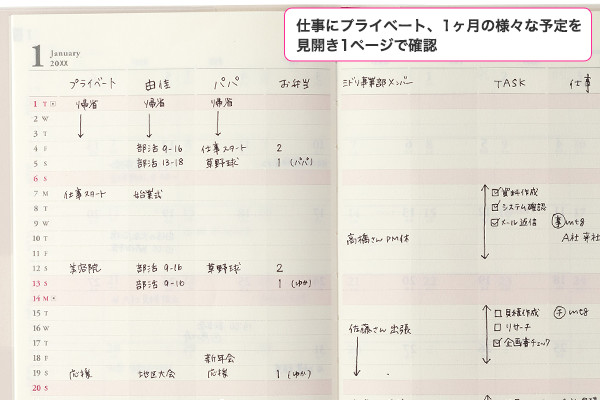 仕事にプライベート、1ヶ月の様々な予定を
見開き1ページで確認
1 January
20XX
プライベート 由佳 パパ お弁当 ミドリ事業部メンバー TASK 仕事
1 T 帰省 帰省 帰省
2 W
3 T
4 F 部活 9-16 仕事スタート 2
5 S 部活 13-18 草野球 1 (パパ)
6 S
7 M 仕事スタート 始業式 資料作成
8 T システム確認
9 W メール返信 mtg
10 T 高橋さん PM休 A社
11 F
12 S 美容院 部活 9-16 草野球 2
13 S 部活 9-16 1 (ゆか)
14 M
15 T 見積作成 mtg
16 W 佐藤さん 出張 リサーチ
17 T 企画書チェック
18 F 新年会
19 S 応援 地区大会 応援 1 (ゆか)
20 S